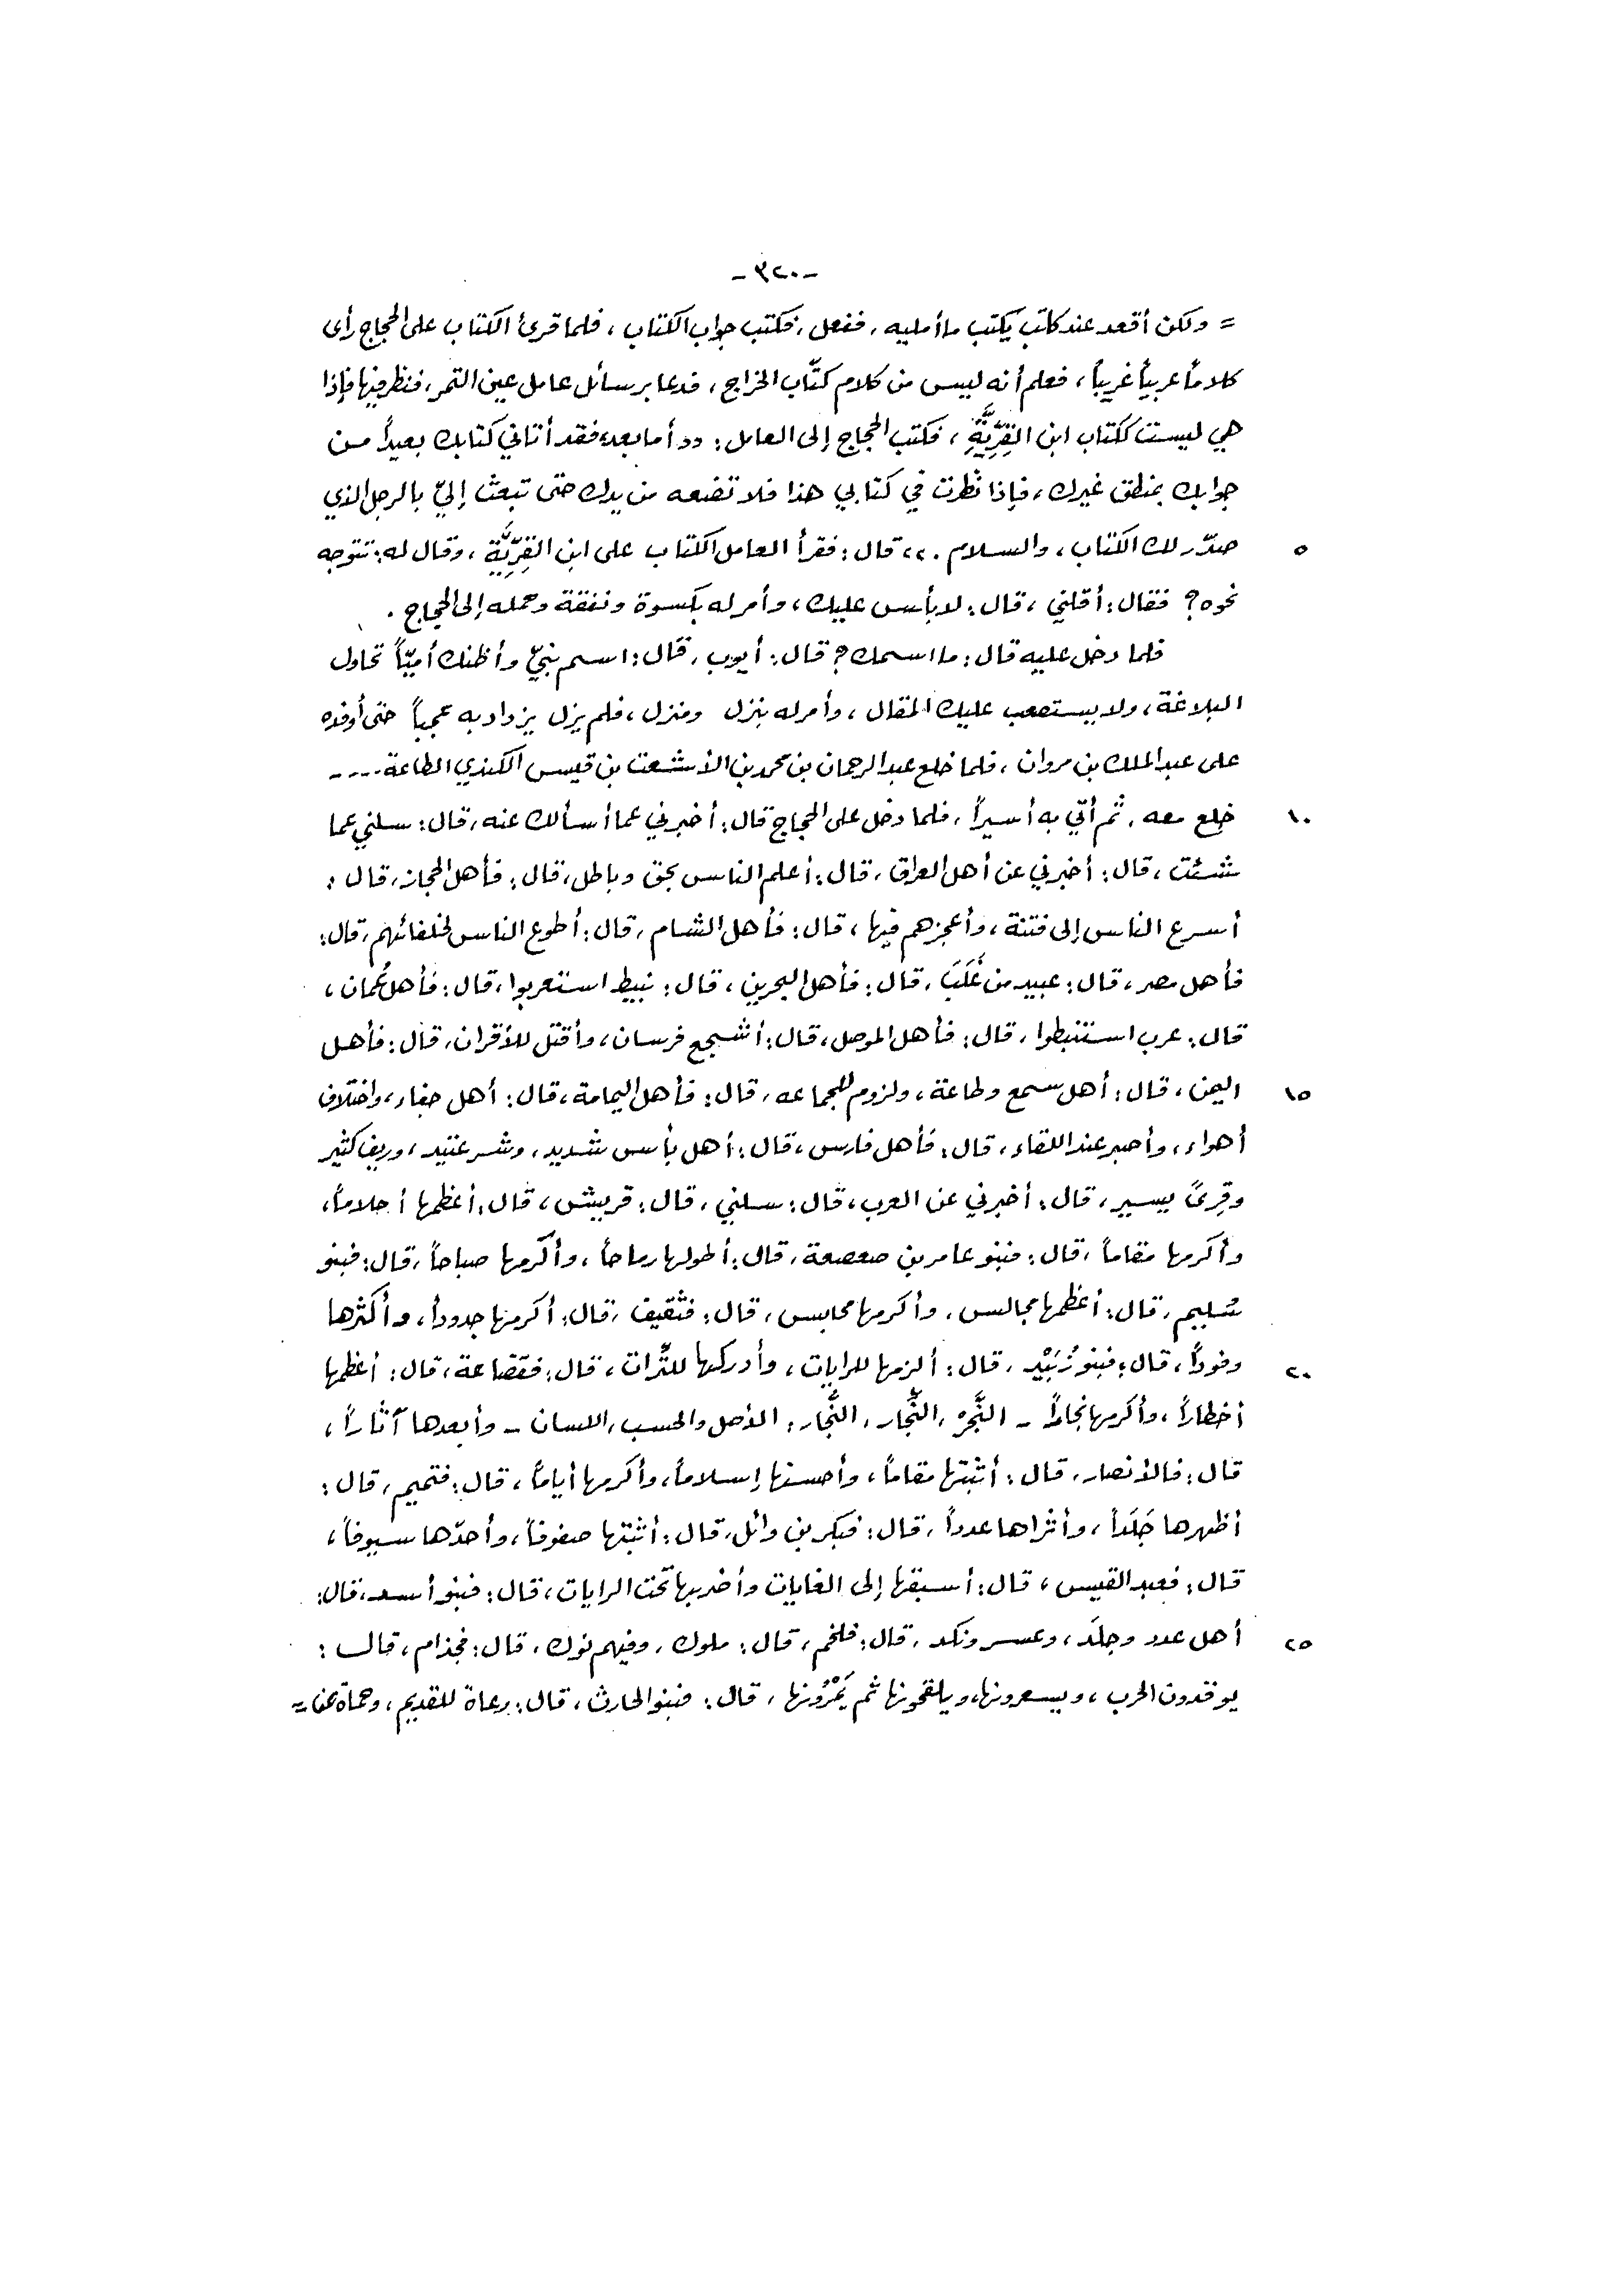 -٣٢٠-
= ولكن أقعد عند كاتب يكتب ما أمليه، ففعل، فكتب جواب الكتاب، فلما قرئ الكتاب على الحجاج رأى
كلاماً عربياً غريباً، فعلم أنه ليس من كلام كتّاب الخراج، فدعا برسائل عامل عين التمر، فنظر فيها فإذا
هي ليست ككتاب ابن القِرِّيَّةِ، فكتب الحجاج إلى العامل: «أما بعد، فقد أتاني كتابك بعيداً من
جوابك بمنطق غيرك، فإذا نظرت في كتابي هذا فلا تضعه من يدك حتى تبعث إليّ بالرجل الذي
٥ صدّر لك الكتاب، والسلام.» قال: فقرأ العامل الكتاب على ابن القِرِّيَّة، وقال له: تتوجه
نحوه؟ فقال: أقلني، قال: لا بأس عليك، وأمر له بكسوة ونفقة وحمله إلى الحجاج.
فلما دخل عليه قال: ما اسمك؟ قال: أيوب، قال: اسم نبيّ وأظنك أميّاً تحاول
البلاغة، ولا يستصعب عليك المقال، وأمر له بنزل ومنزل، فلم يزل يزداد به عجباً حتى أوفده
على عبد الملك بن مروان، فلما خلع عبد الرحمان بن محمد بن الأشعث بن قيس الكندي الطاعة....
١٠ خلع معه، ثم أتي به أسيراً، فلما دخل على الحجاج قال: أخبرني عما أسألك عنه، قال: سلني عما
شئت، قال: أخبرني عن أهل العراق، قال: أعلم الناس بحق وباطل، قال: فأهل الحجاز، قال:
أسرع الناس إلى فتنة، وأعجزهم فيها، قال: فأهل الشام، قال: أطوع الناس لخلفائهم، قال:
فأهل مصر، قال: عبيد من غَلَبَ، قال: فأهل البحرين، قال: نبيط استعربوا، قال: فأهل عُمان،
قال: عرب استنبطوا، قال: فأهل الموصل، قال: أشجع فرسان، وأقتل للأقران، قال: فأهل
١٥ اليمن، قال: أهل سمع وطاعة، ولزوم للجماعه، قال: فأهل اليمامة، قال: أهل جفاء، واختلاف
أهواء، وأصبر عند اللقاء، قال: فأهل فارس، قال: أهل بأس شديد، وشر عتيد، وريف كثير
وقِرىً يسير، قال: أخبرني عن العرب، قال: سلني، قال: قريش، قال: أعظمها أحلاماً،
وأكرمها مقاماً، قال: فبنو عامر بن صعصعة، قال: أطولها رماحاً، وأكرمها صباحاً، قال: فبنو
سُليم، قال: أعظمها مجالس، وأكرمها محابس، قال: فثقيف، قال: أكرمها جدوداً، وأكثرها
٢٠ وفوداً، قال: فبنو زُبَيْد، قال: ألزمها للرايات، وأدركها للتِّرات، قال: فقضاعة، قال: أعظمها
أخطاراً، وأكرمها نجاراً - النَّجْرُ، النِّجار، النُّجار: الأصل والحسب، اللسان - وأبعدها آثاراً،
قال: فالأنصار، قال: أثبتها مقاماً، وأحسنها إسلاماً، وأكرمها أياماً، قال: فتميم، قال:
أظهرها جَلَداً، وأثراها عدداً، قال: فبكر بن وائل، قال: أثبتها صفوفاً، وأحدّها سيوفاً،
قال: فعبد القيس، قال: أسبقها إلى الغايات وأضربها تحت الرايات، قال: فبنو أسد، قال:
٢٥ أهل عدد وجلَد، وعسر ونكد، قال: فلخم، قال: ملوك، وفيهم نوك، قال: فجذام، قال:
يوقدون الحرب، ويسعرونها، ويلقحونها ثم يَمْرُونها، قال: فبنو الحارث، قال: رعاة للقديم، وحماة عن =